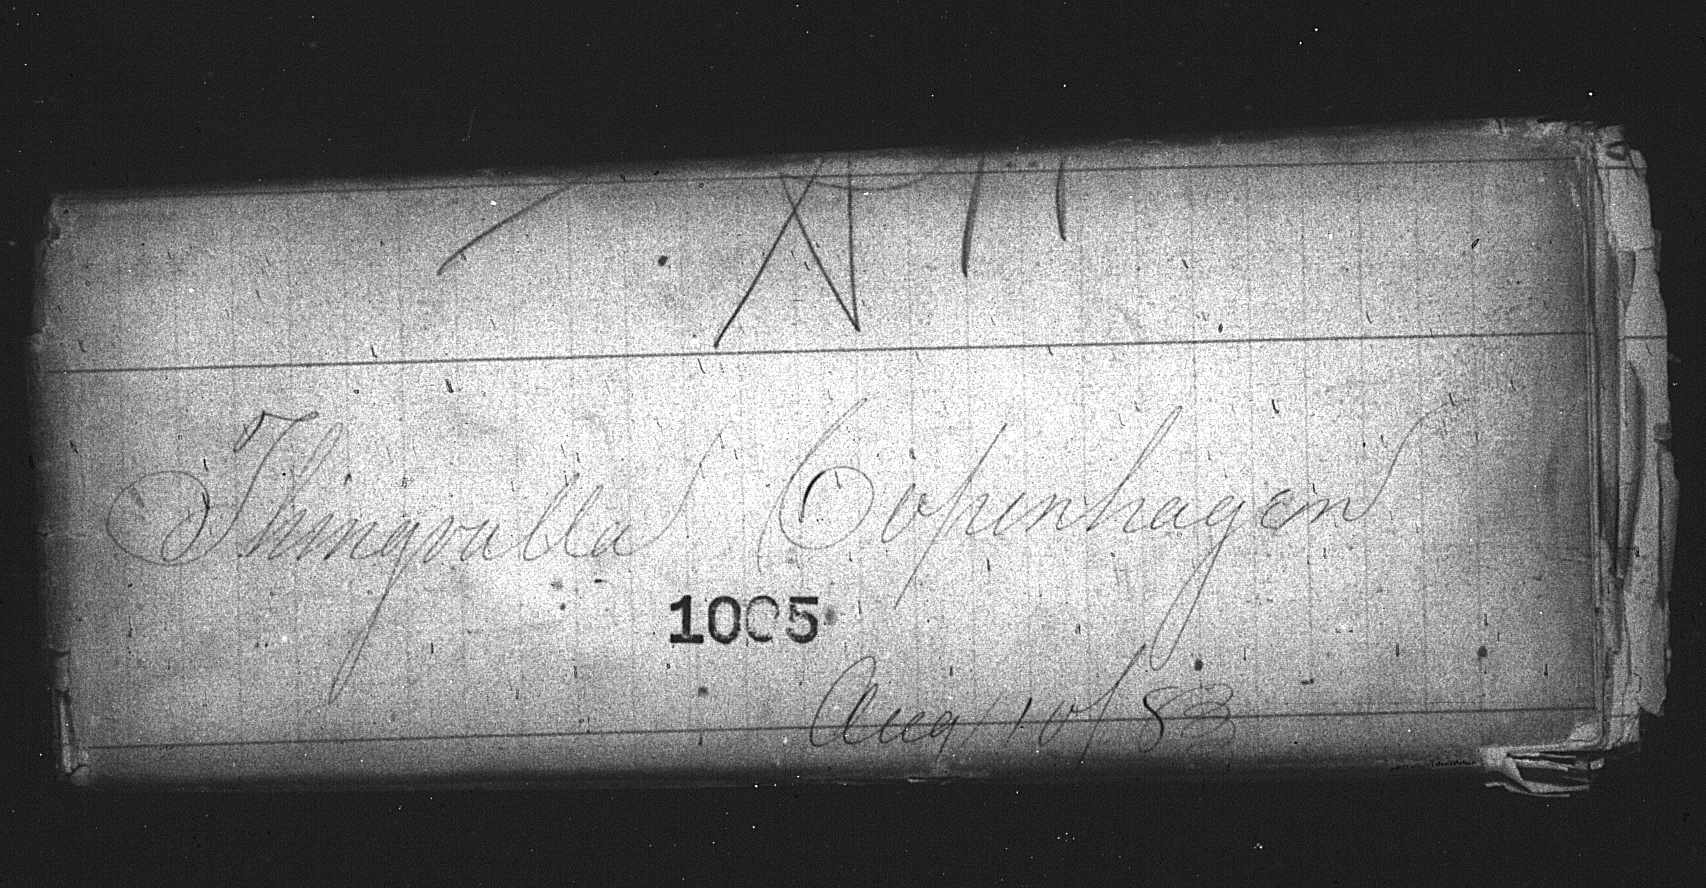 Thingvalla Copenhagen
1005
Aug 10/83